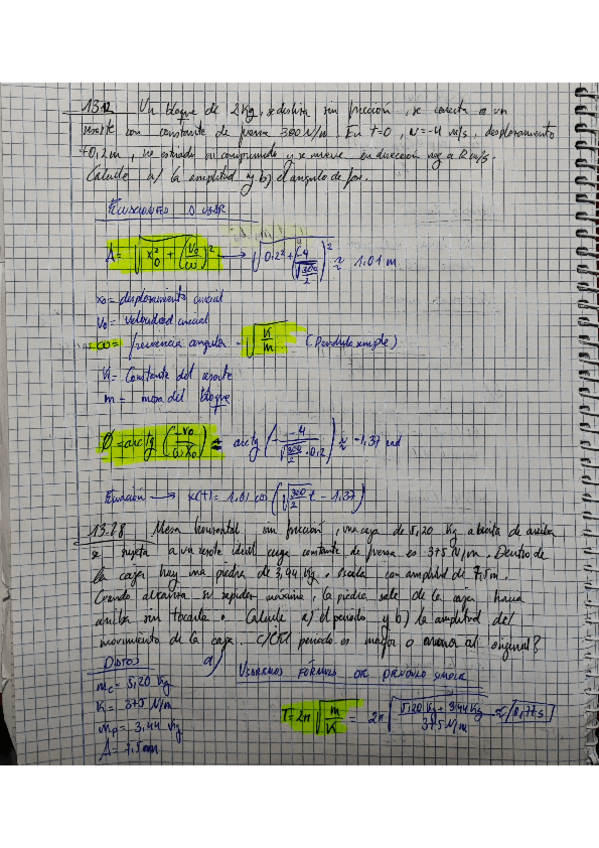 13.12 Un bloque de 2 Kg, se desliza sin fricción, se conecta a un
resorte con constante de fuerza 300 N/m. En t=0, v=-4 m/s, desplazamiento
+0,2m, no estirado ni comprimido y se mueve en dirección neg a
Calcule a) la amplitud y b) el angulo de fase.
A = √(x₀² + (v₀/ω)²) → √(0.2² + (-4/√(300/2))²) ≈
x₀ = desplazamiento inicial
v₀ = velocidad inicial
ω = frecuencia angular = √(K/m) (Péndulo simple)
K = Constante del resorte
m = masa del bloque
Ø = arctg (-v₀/ωx₀) ≈ arctg (- -4/(√(300/2) · 0,2)) ≈ -1,37 rad
Ecuación → x(t) = 1.01 cos (√(300/2) t - 1,37)
13.28 Mesa horizontal sin fricción, una caja de 5,20 Kg abierta de arriba
se sujeta a un resorte ideal cuya constante de fuerza es 375 N/m. Dentro de
la caja hay una piedra de 3,44 Kg. Oscila con amplitud de 7,5m.
Cuando alcanza su rapidez máxima, la piedra sale de la caja hacia
arriba sin tocarla. Calcule a) el periodo y b) la amplitud del
movimiento de la caja. c) El periodo es mayor o menor al original?
DATOS a) USAREMOS FÓRMULA DE PÉNDULO SIMPLE
mc = 5,20 Kg
K = 375 N/m
mp = 3,44 Kg
A = 7,5
T = 2π √(m/K) = 2π √((5,20 Kg + 3,44 Kg)/(375 N/m))